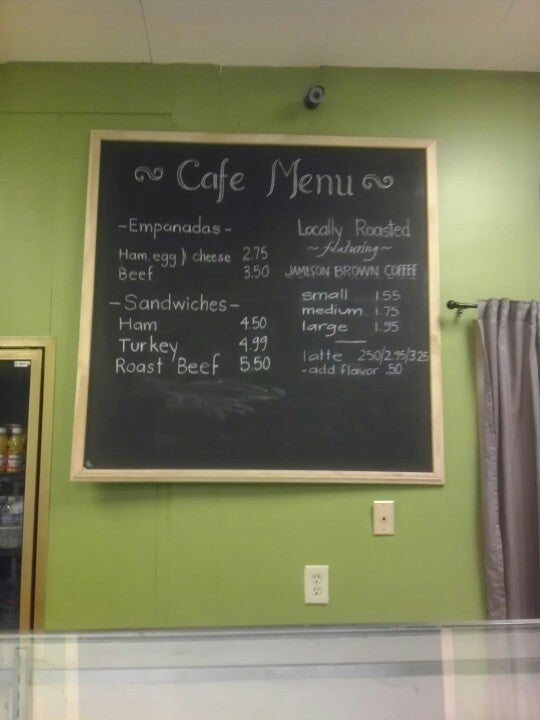 Cafe Menu
-Empanadas-
Ham, egg & cheese 2.75
Beef 3.50
-Sandwiches-
Ham 4.50
Turkey 4.99
Roast Beef 5.50
Locally Roasted
~featuring~
JAMESON BROWN COFFEE
small 1.55
medium 1.75
large 1.95
latte 2.50/2.95/3.25
-add flavor .50